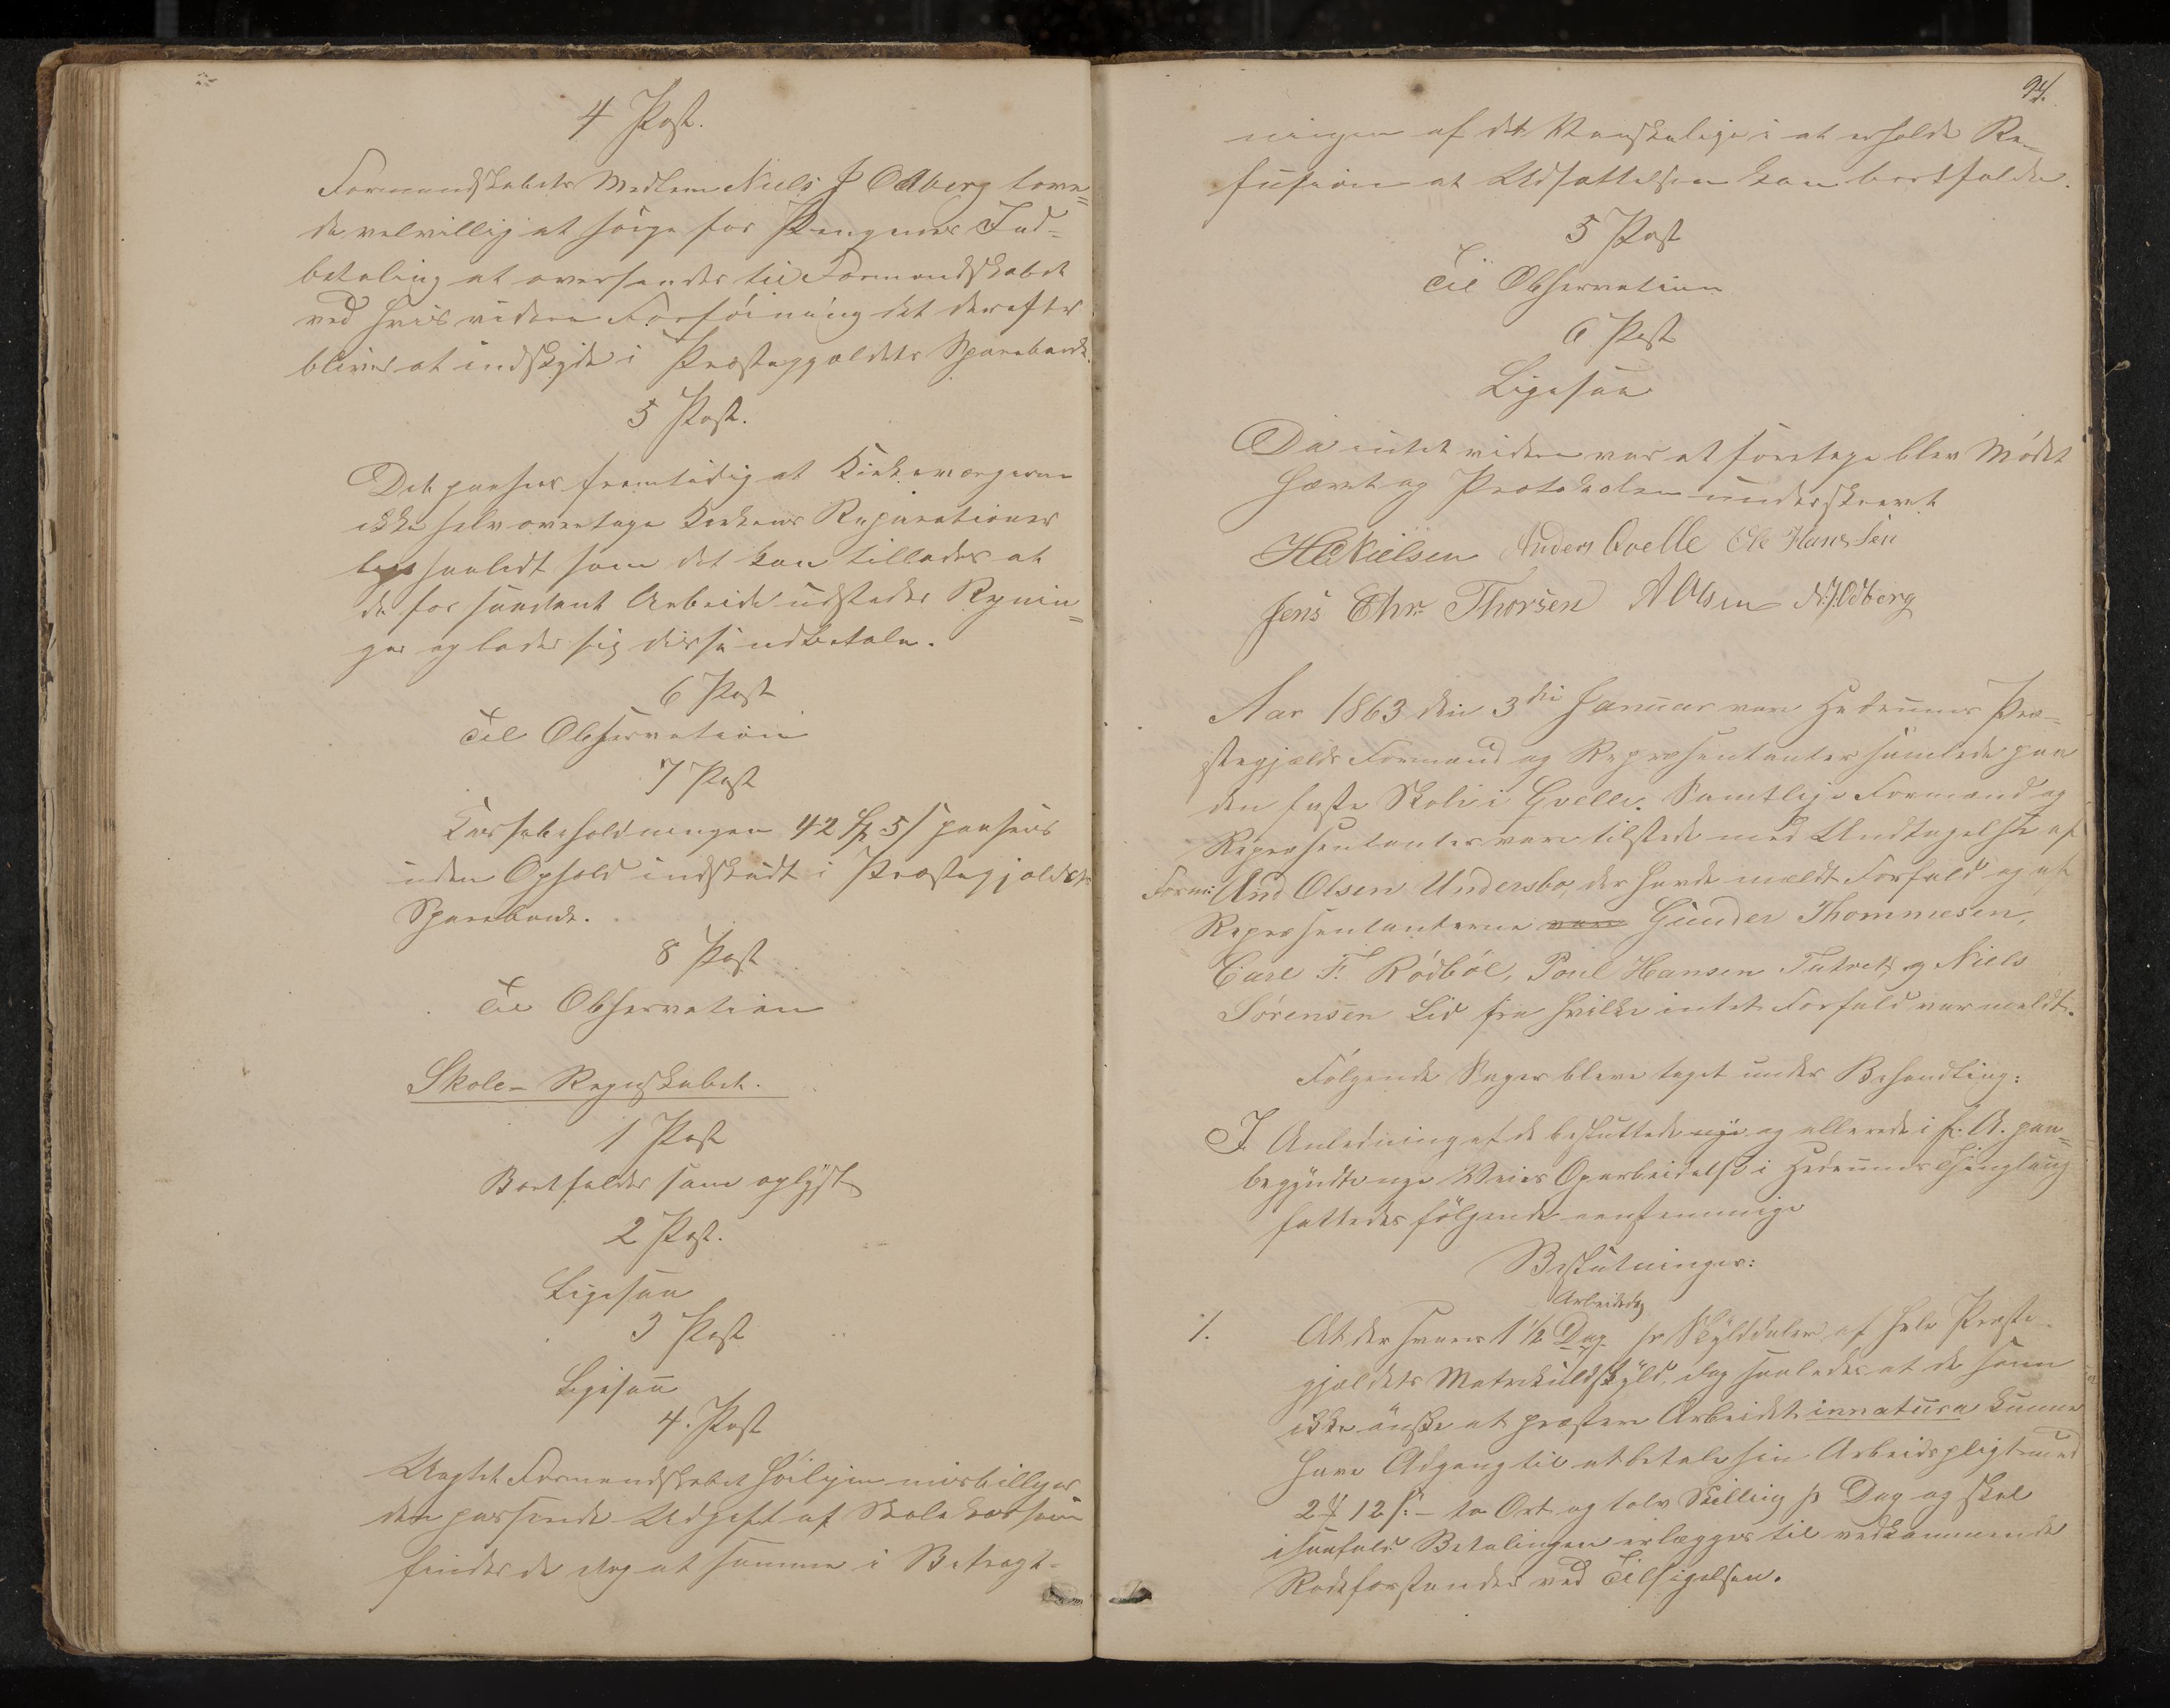 4 Post.
Formandskabets Medlem Niels J Odberg love=
de velvillig at sørge for Pengenes Ind=
betaling at oversendes til Formandskabet
ved hvis videre Forføining det derefter
bliver at indskyde i Præstegjældets Sparebank.
5 Post.
Det paasees fremtidig at Kirkeværgerne
ikke selv overtage Kirkens Reparationer
saaledt som det kan tillades at
de for saadant Arbeide udsteder Regnin=
ger og lader sig disse udbetale.
6 Post
Til Observation
7 Post
Kassebeholdningen 42 Sp 5 s paasees
uden Ophold indskudt i Præstegjældets
Sparebank.
8 Post
Til Observation
Skole-Regnskabet.
1 Post
Bortfalder som oplyst
2 Post.
Ligesaa
3 Post
Ligesaa
4. Post
Uagtet Formandskabet høiligen misbilliger
den passerede Udgift af Skolekassen
finder de dog at samme i Betragt-
94.
ningen af det Vanskelige i at erholde Re-
fusion at Udsættelsen kan bortfalde.
5 Post
Til Observation
6 Post
Ligesaa
Da intet videre var at foretage blev Mødet
hævet og Protokolen underskrevet
HCNielsen Anders Qvelle Ole Hans Sen
Jens Chr. Thorsen A Olsen N.J. Odberg
Aar 1863 den 3die Januar vare Hedenums Præ=
stegjælds Formænd og Repræsentanter samlede paa
den faste Skole i Qvelle. Samtlige Formænd og
Repræsentanter vare tilstede med Undtagelse af
Form: And Olsen Undersbo, der havde mældt Forfald og af
Repræsentanterne vare Gunder Thommesen,
Carl F. Rødbøl, Poul Hansen Tutvet, og Niels
Sørensen Lid fra hvilke intet Forfald var meldt.
Følgende Sager bleve taget under Behandling:
I Anledning af de besluttede nye og allerede i f. A. paa=
begyndte nye Veies Oparbeidelse i Hedenums Thinglaug
fattedes følgende eenstemmige
Beslutninger:
Arbeidsdag
1. At der svares 1 1/2 Dag pr Skylddaler af hele Præste-
gjældets Matrikulskyld, dog saaledes at de som
ikke ønske at præstere Arbeidet innatura kunne
have Adgang til at betale sin Arbeidspligt med
2 # 12 s: - to Ort og tolv Skilling pr Dag og skal
isaafald Betalingen erlægges til vedkommende
Rodeforstander ved Tilsigelsen.